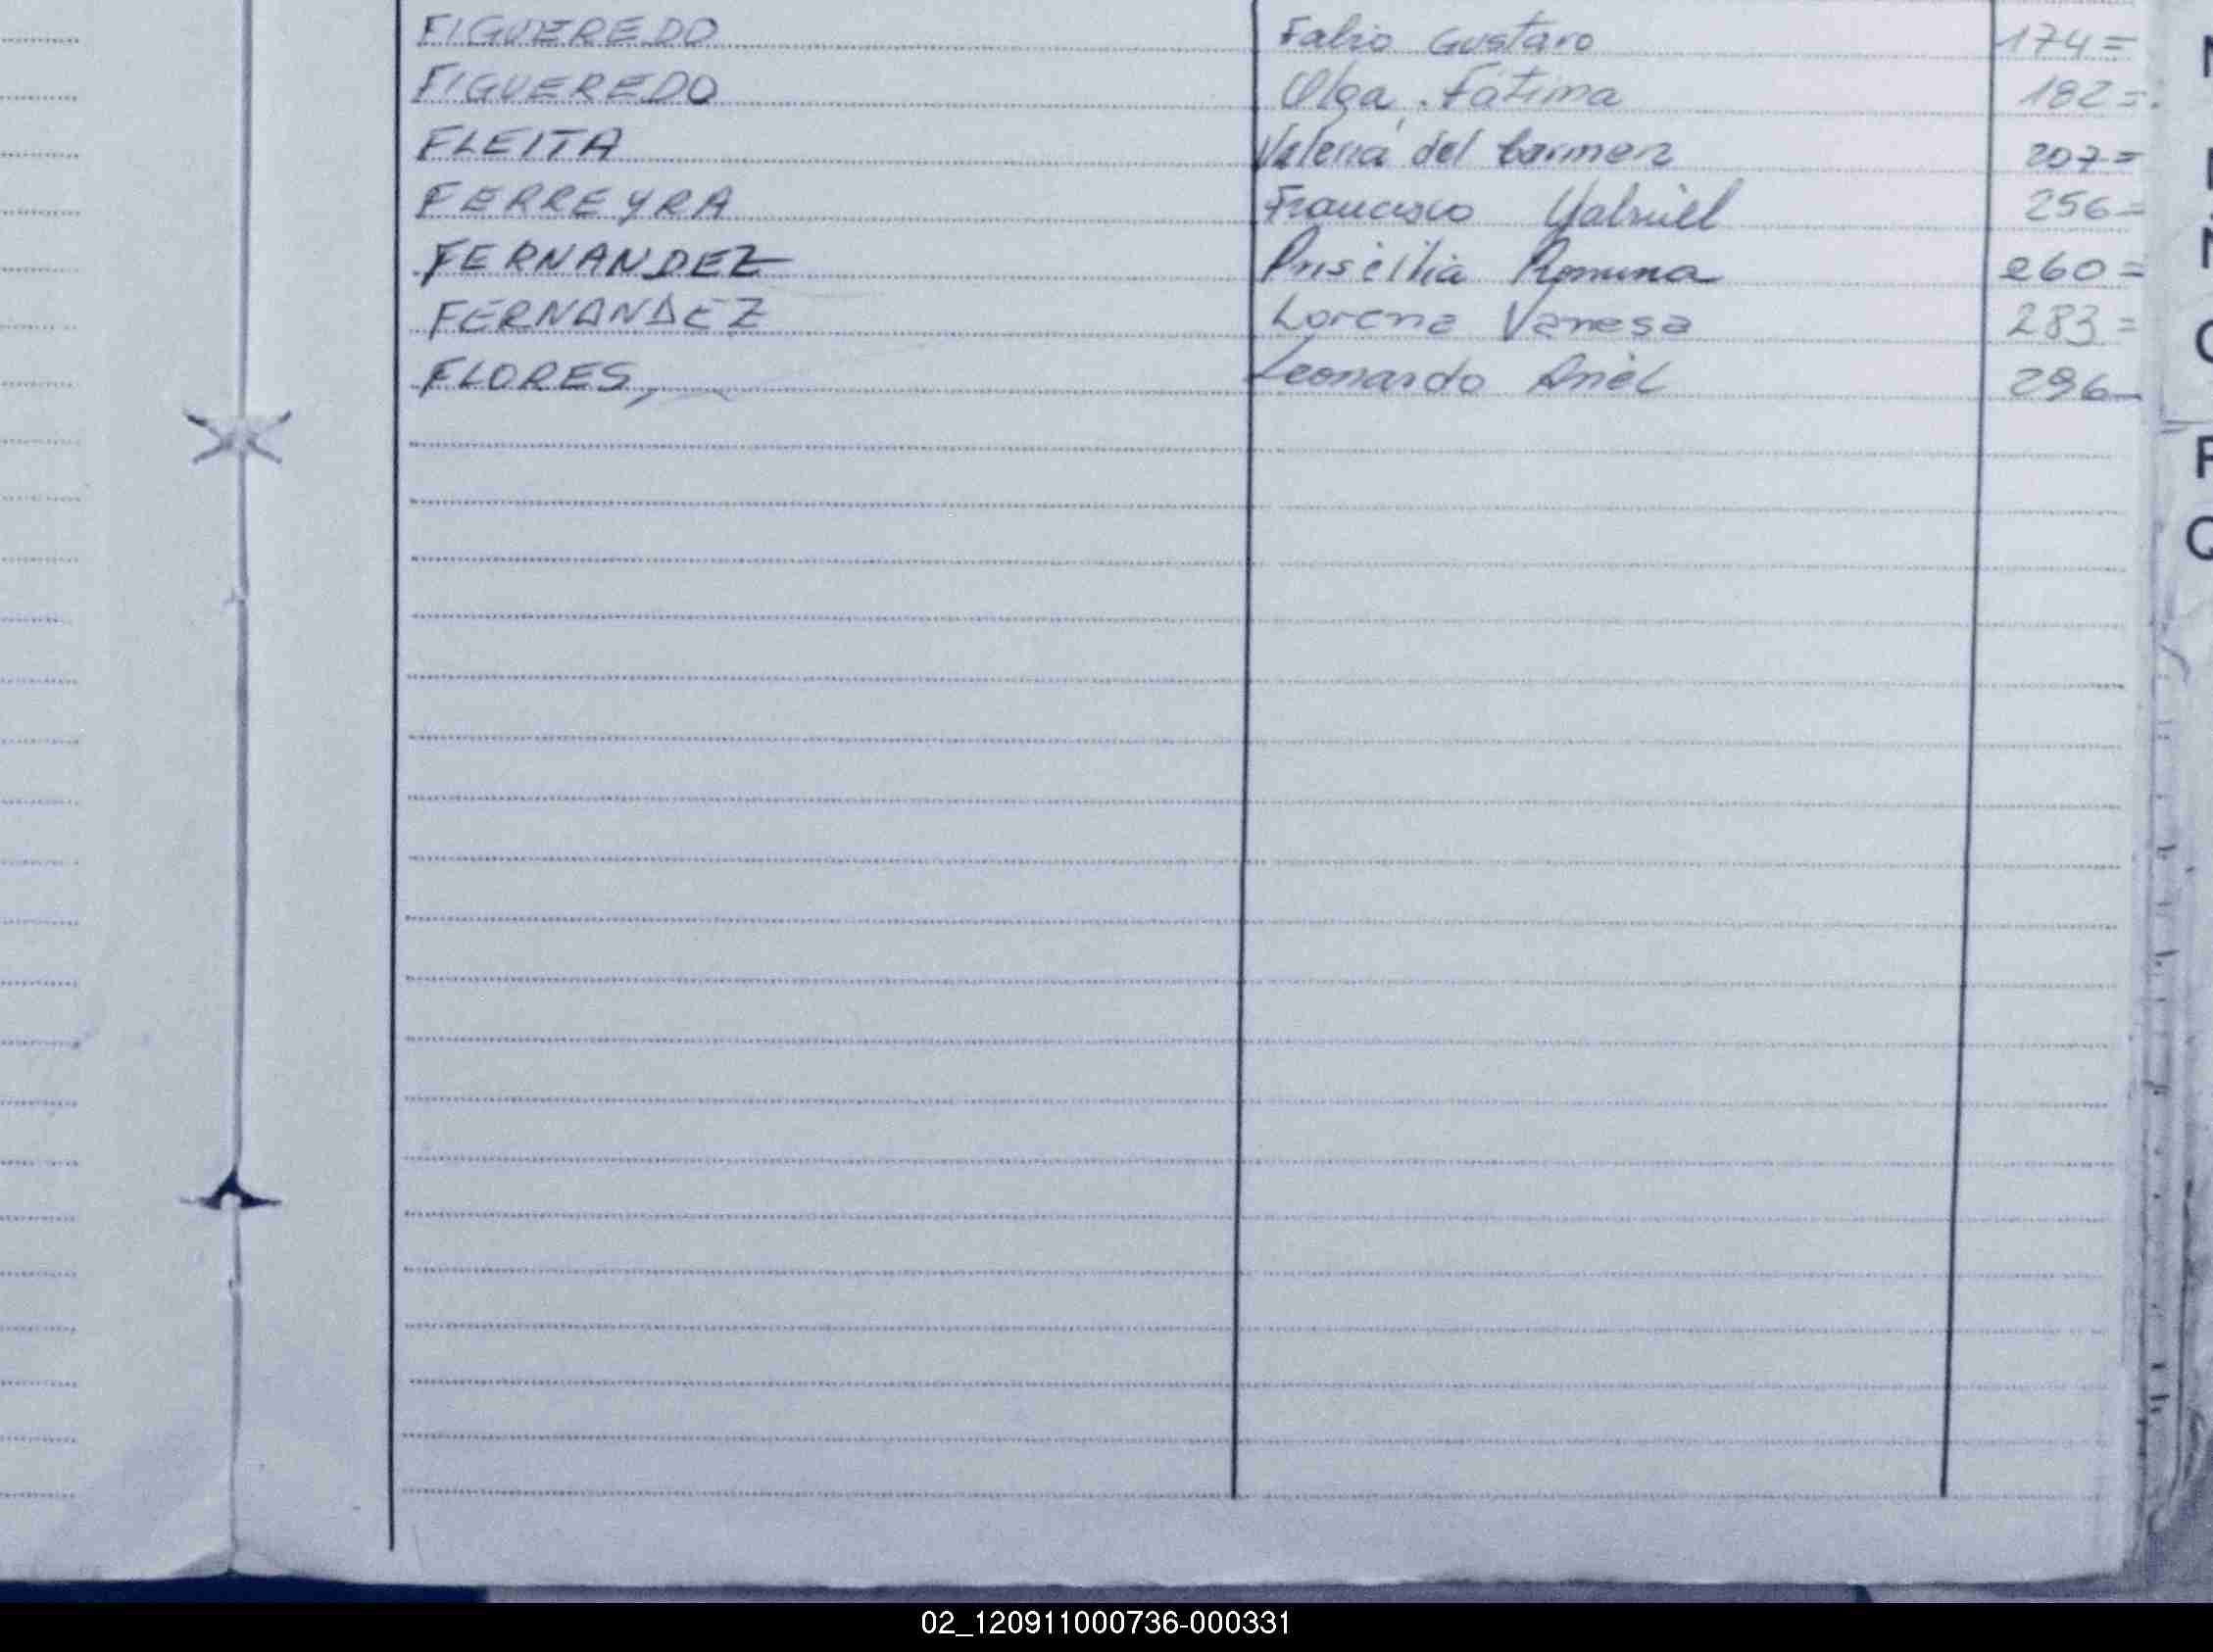 FIGUEREDO Fabio Gustavo 174=
FIGUEREDO Olga Fátima 182=.
FLEITA Valeria del Carmen 207=
FERREYRA Francisco Gabriel 256=
FERNANDEZ Priscilia Romina 260=
FERNANDEZ Lorena Vanesa 283=
FLORES, Leonardo Ariel 296_
Q
02_120911000736-000331